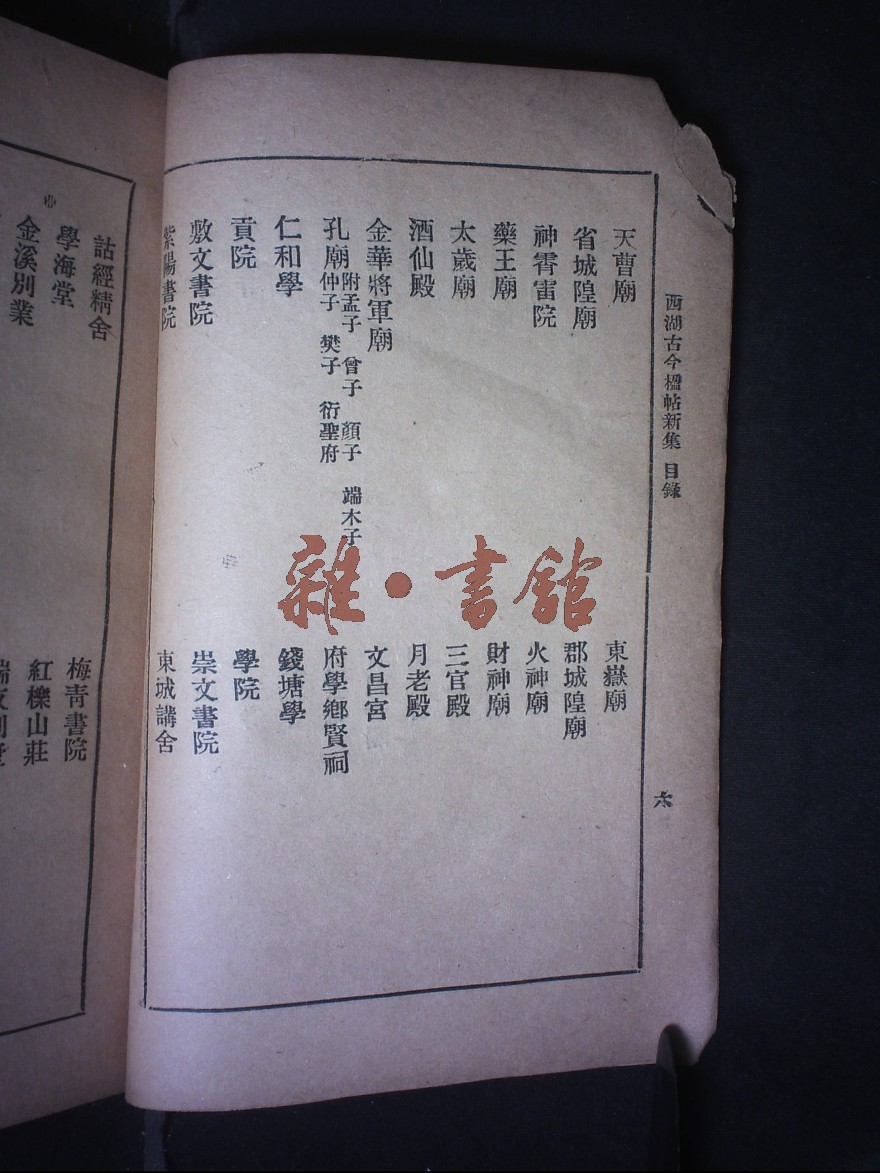 西湖古今楹帖新集 目錄
六
天曹廟
東嶽廟
省城隍廟
郡城隍廟
神霄雷院
火神廟
藥王廟
財神廟
太歲廟
三官殿
酒仙殿
月老殿
金華將軍廟
文昌宮
孔廟
附孟子 曾子 顏子 端木子
仲子 樊子 衍聖府
府學鄉賢祠
仁和學
錢塘學
貢院
學院
敷文書院
崇文書院
紫陽書院
東城講舍
詁經精舍
梅青書院
學海堂
紅櫟山莊
金溪別業
雜·書館